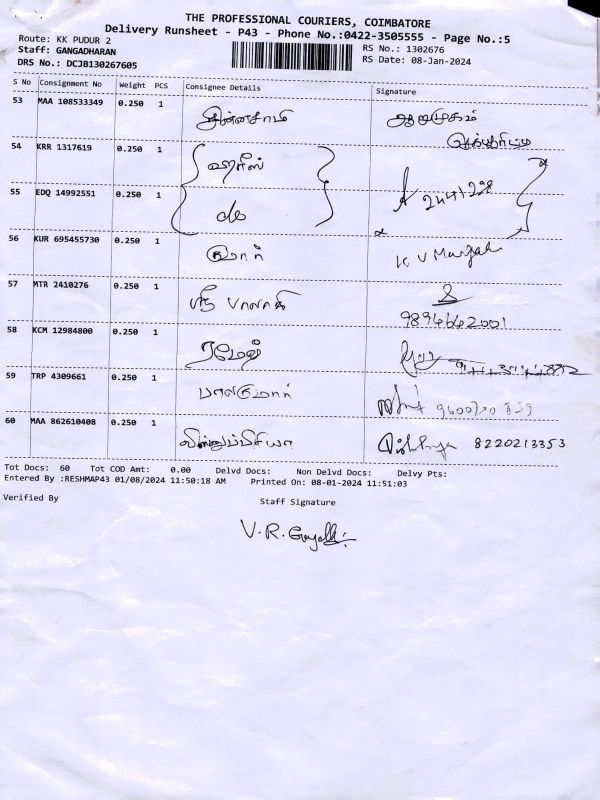 THE PROFESSIONAL COURIERS, COIMBATORE
Delivery Runsheet - P43 - Phone No.:0422-3505555 - Page No.:5
Route: KK PUDUR 2
RS No.: 1302676
Staff: GANGADHARAN
RS Date: 08-Jan-2024
DRS No.: DCJB130267605
S No Consignment No Weight PCS Consignee Details Signature
53 MAA 108533349 0.250 1 சின்னசாமி ஆறுமுகம்
54 KRR 1317619 0.250 1 ஹரிஸ்
55 EDQ 14992551 0.250 1 do
56 KUR 695455730 0.250 1 குமார் K V
57 MTR 2410276 0.250 1 ஸ்ரீ பாலாஜி
9894662001
58 KCM 12984800 0.250 1 ரமேஷ்
59 TRP 4309661 0.250 1 பாலகுமார்
60 MAA 862610408 0.250 1 விஷ்ணுப்பிரியா 8220213353
Tot Docs: 60 Tot COD Amt: 0.00 Delvd Docs: Non Delvd Docs: Delvy Pts:
Entered By :RESHMAP43 01/08/2024 11:50:18 AM Printed On: 08-01-2024 11:51:03
Verified By
Staff Signature
V.R.